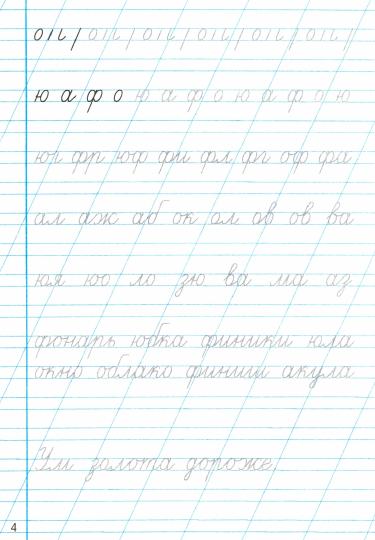 ю а ф о ю а ф о ю а ф о ю
юг фр юф фи фл фг оф фа
ал аж аб ок ол ов ов ва
юя юо ло зю ва ма аз
фонарь юбка финики юла
окно облако финиш акула
Ум золота дороже.
4